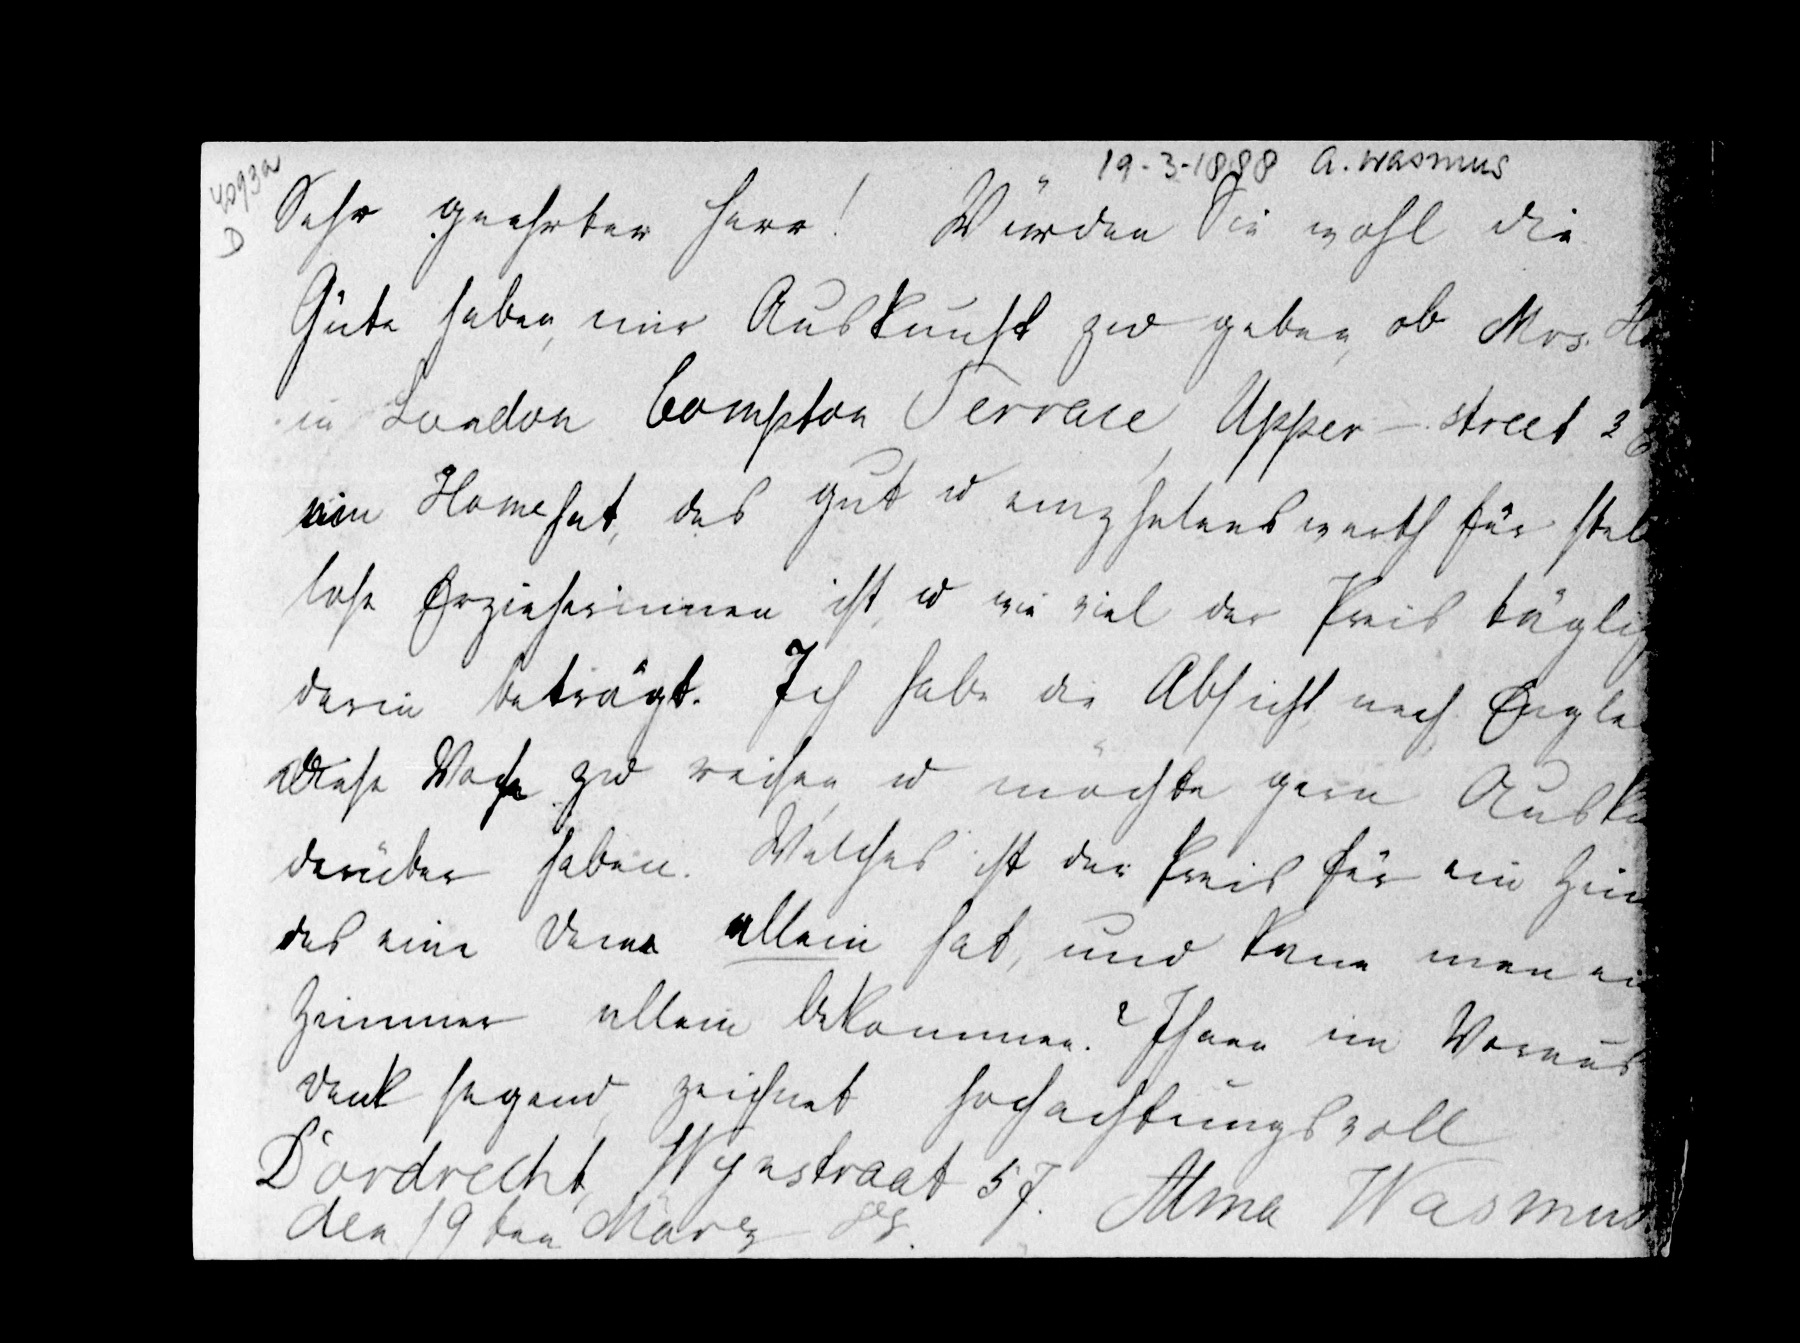 19-3-1888 A. Wasmus
4093a
D
Sehr geehrter Herr! Würden Sie wohl die
Güte haben, mir Auskunft zu geben, ob Mrs.
in London Compton Terrace, Upper-street 36
ein Home hat, das gut u empfehlenswerth für stel
lose Erzieherinnen ist, u wie viel der Preis täglich
darin beträgt. Ich habe die Absicht, nach Englan
diese Woche zu reisen, u möchte gern Ausku
darüber haben. Welches ist der Preis für ein Zim
das eine Dame allein hat, und kann man ein
Zimmer allein bekommen? Ihnen im Voraus
Dank sagend, zeichnet hochachtungsvoll
Dordrecht, Wynstraat 57. Alma Wasmus
den 19ten März 88.